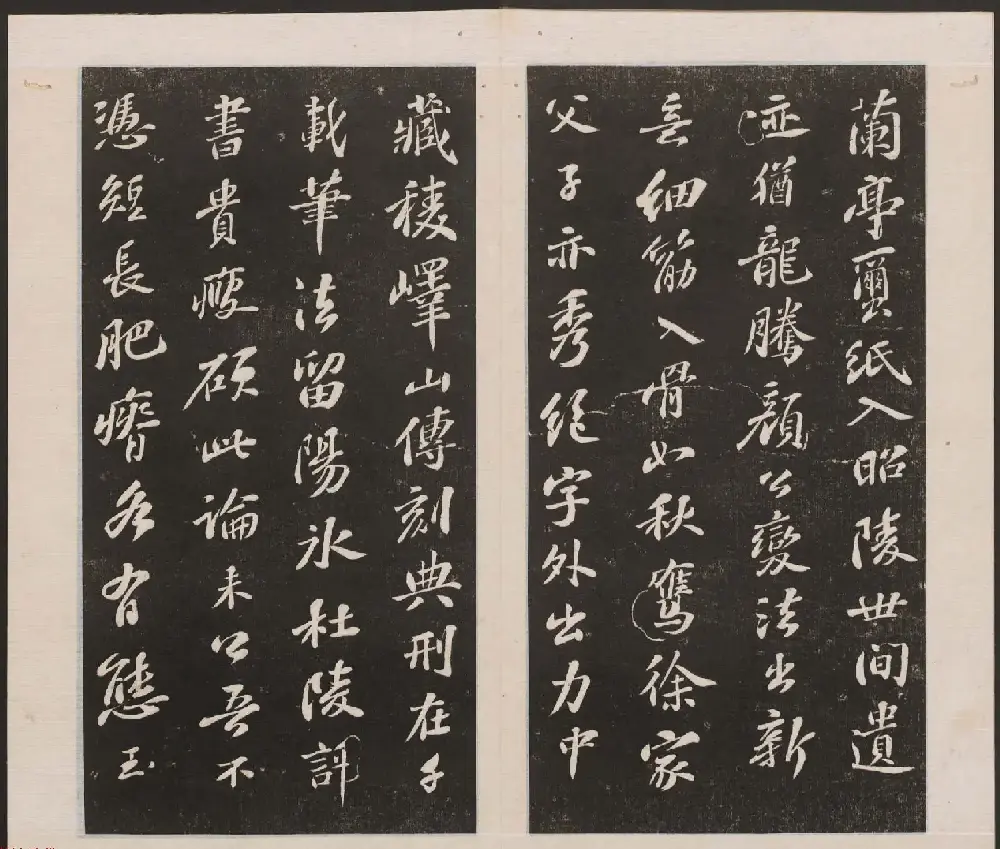 蘭亭蠒紙入昭陵世間遺
迹猶龍騰顏公變法出新
意細筋入骨如秋鷹徐家
父子亦秀絕字外出力中
藏稜嶧山傳刻典刑在千
載筆法留陽冰杜陵評
書貴瘦硬此論未公吾不
憑短長肥瘠各有態玉